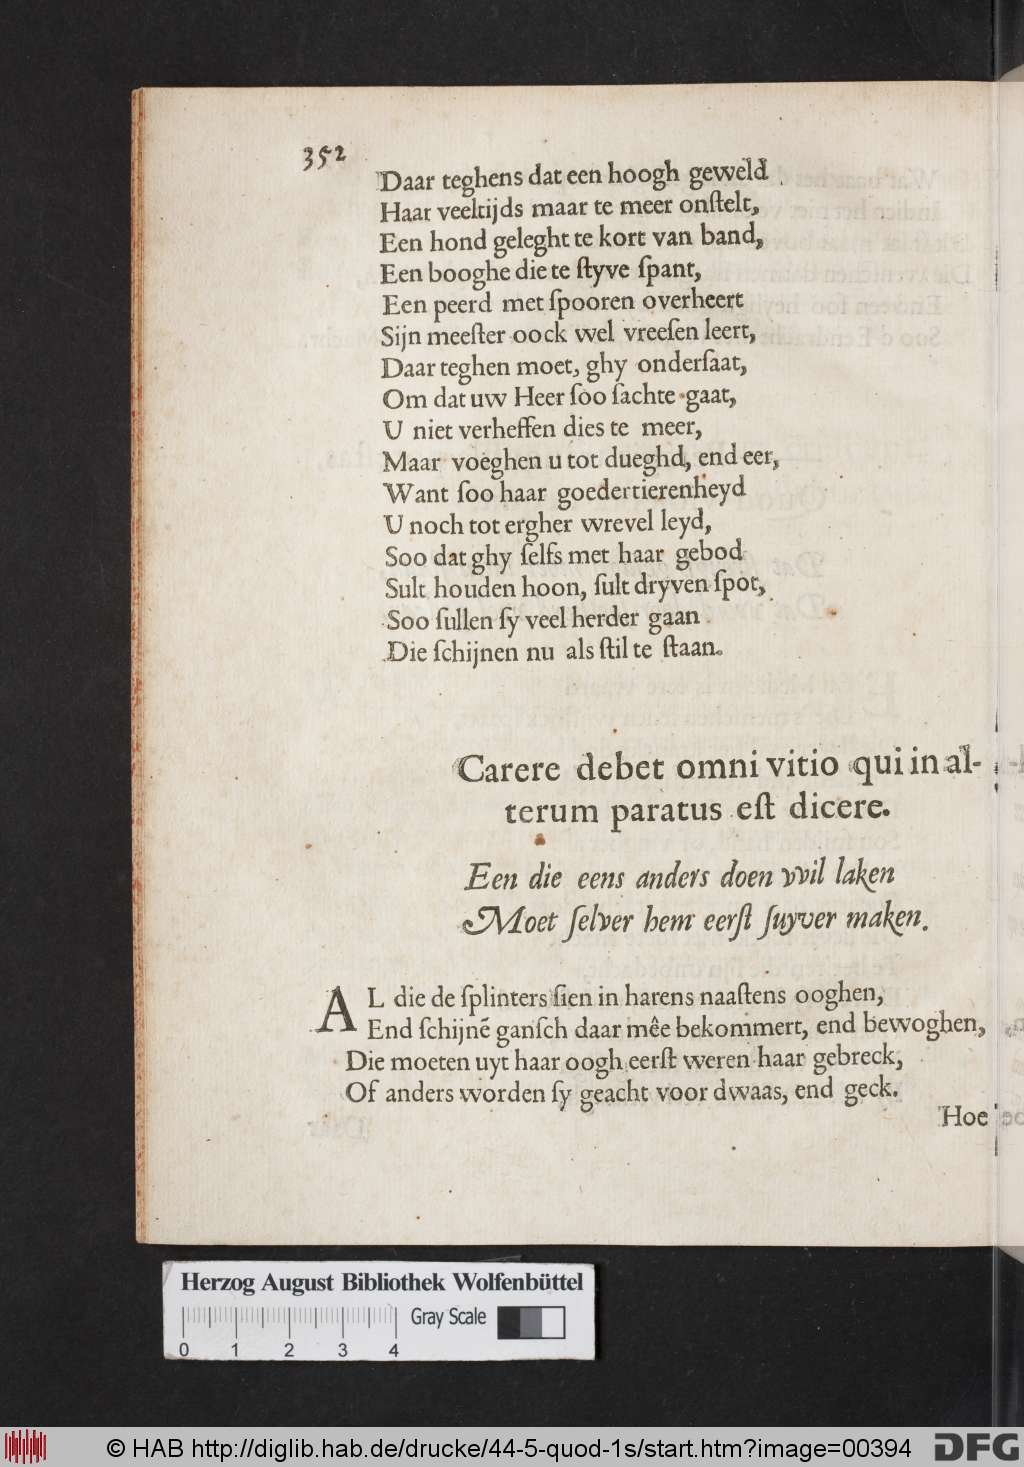 352
Daar teghens dat een hoogh geweld
Haar veeltijds maar te meer onſtelt,
Een hond geleght te kort van band,
Een booghe die te ſtyve ſpant,
Een peerd met ſpooren overheert
Sijn meeſter oock wel vreeſen leert,
Daar teghen moet, ghy onderſaat,
Om dat uw Heer ſoo ſachte gaat,
U niet verheffen dies te meer,
Maar voeghen u tot dueghd, end eer,
Want ſoo haar goedertierenheyd
U noch tot ergher wrevel leyd,
Soo dat ghy ſelfs met haar gebod
Sult houden hoon, ſult dryven ſpot,
Soo ſullen ſy veel herder gaan
Die ſchijnen nu als ſtil te ſtaan.
Carere debet omni vitio qui in al-
terum paratus eſt dicere.
Een die eens anders doen vvil laken
Moet ſelver hem eerſt ſuyver maken.
AL die de ſplinters ſien in harens naaſtens ooghen,
End ſchijnẽ ganſch daar mêe bekommert, end bewoghen,
Die moeten uyt haar oogh eerſt weren haar gebreck,
Of anders worden ſy geacht voor dwaas, end geck.
Hoe
Herzog August Bibliothek Wolfenbüttel
Gray Scale
0 1 2 3 4
© HAB http://diglib.hab.de/drucke/44-5-quod-1s/start.htm?image=00394
DFG